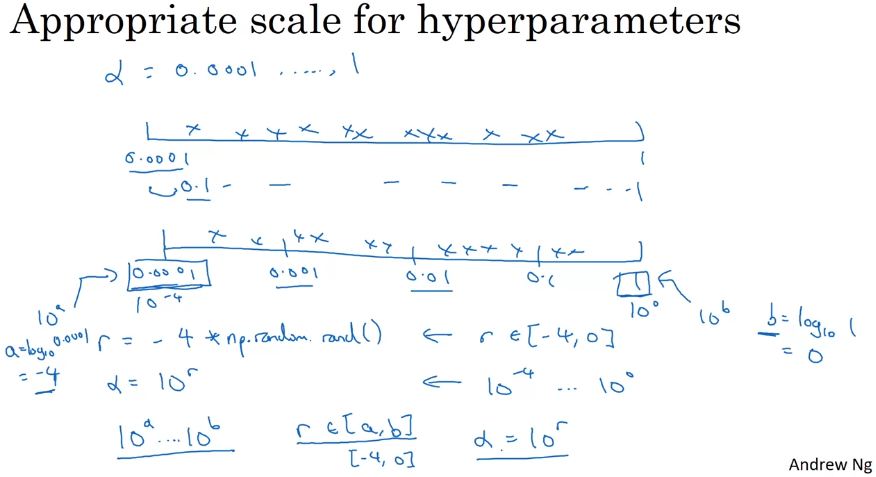 Appropriate scale for hyperparameters
α = 0.0001 ....., 1
0.0001 1
0.1 - - - - - - - - 1
0.0001 0.001 0.01 0.1 1
10^-4 10^0
10^a 10^b
a=log₁₀0.0001
= -4
r = -4 * np.random.rand() ← r ∈ [-4, 0]
b = log₁₀ 1
= 0
α = 10^r ← 10^-4 ... 10^0
10^a .... 10^b r ∈ [a, b] α = 10^r
[-4, 0]
Andrew Ng